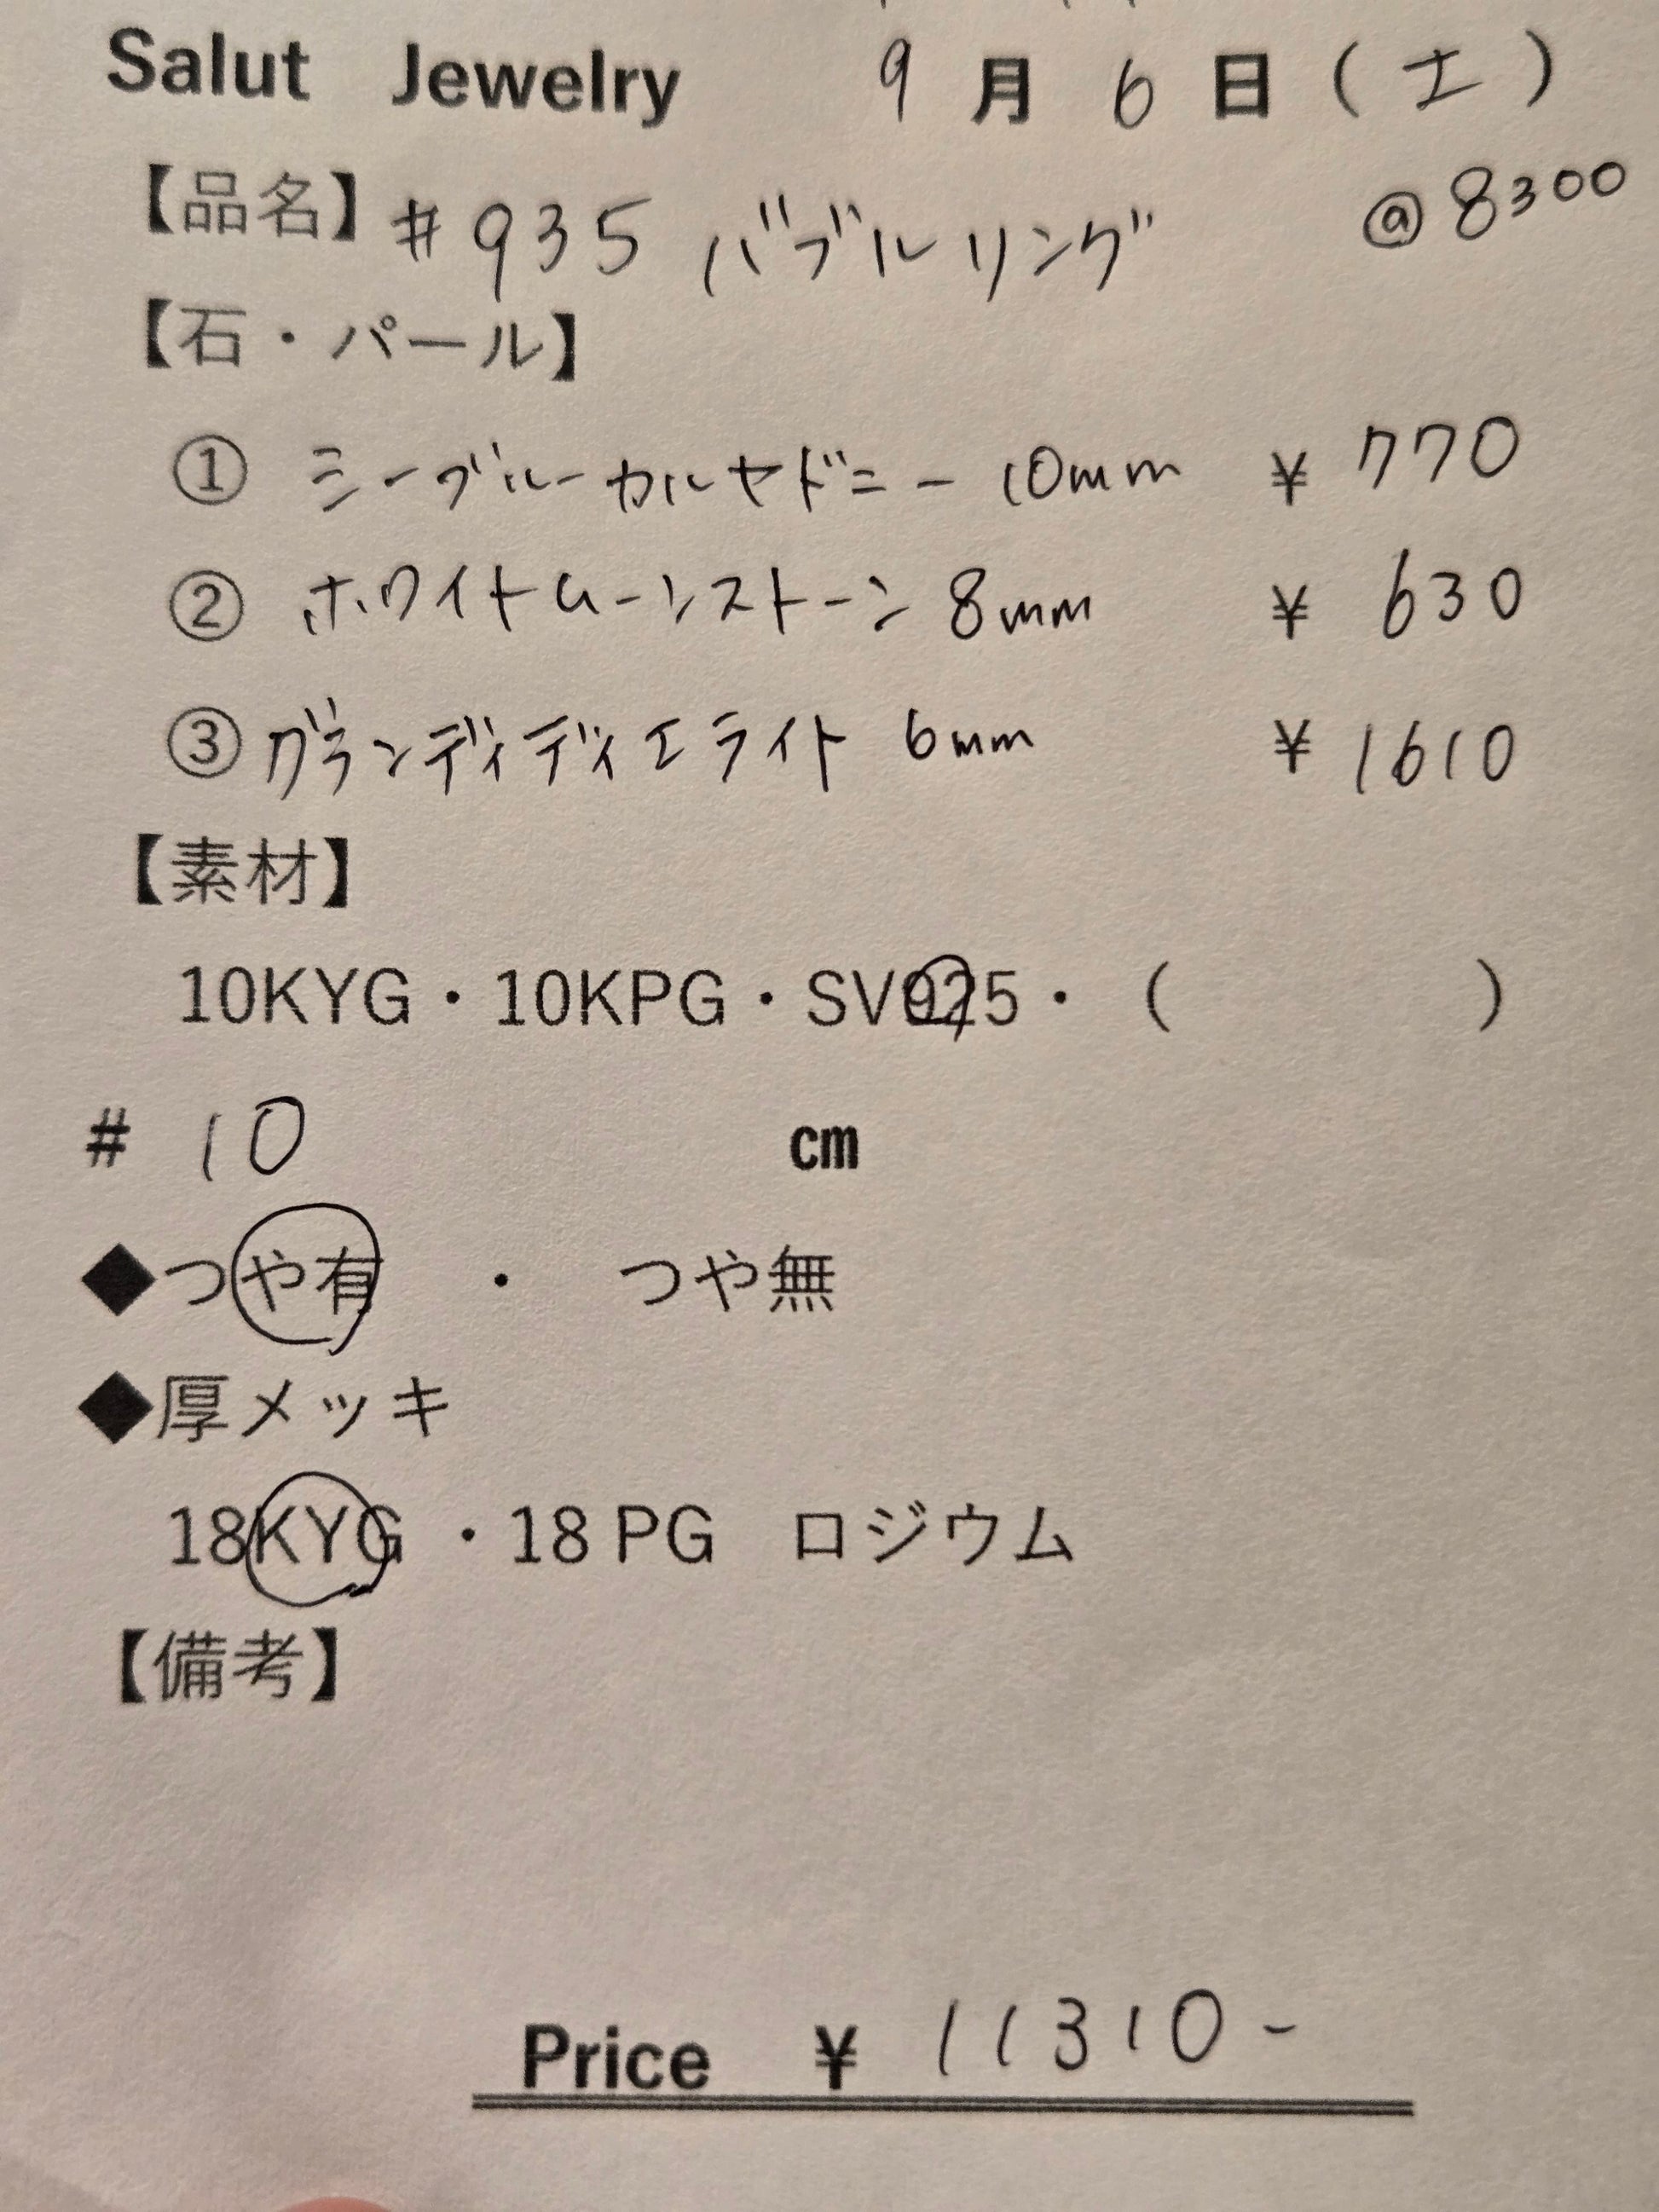 Salut Jewelry 9月6日(土)
【品名】#935 バブルリング @8300
【石・パール】
① シーブルーカルセドニー 10mm ¥770
② ホワイトムーンストーン 8mm ¥630
③ グランディディエライト 6mm ¥1610
【素材】
10KYG・10KPG・SV925・( )
# 10 cm
◆つや有 ・ つや無
◆厚メッキ
18KYG ・18 PG ロジウム
【備考】
Price ¥ 11310-